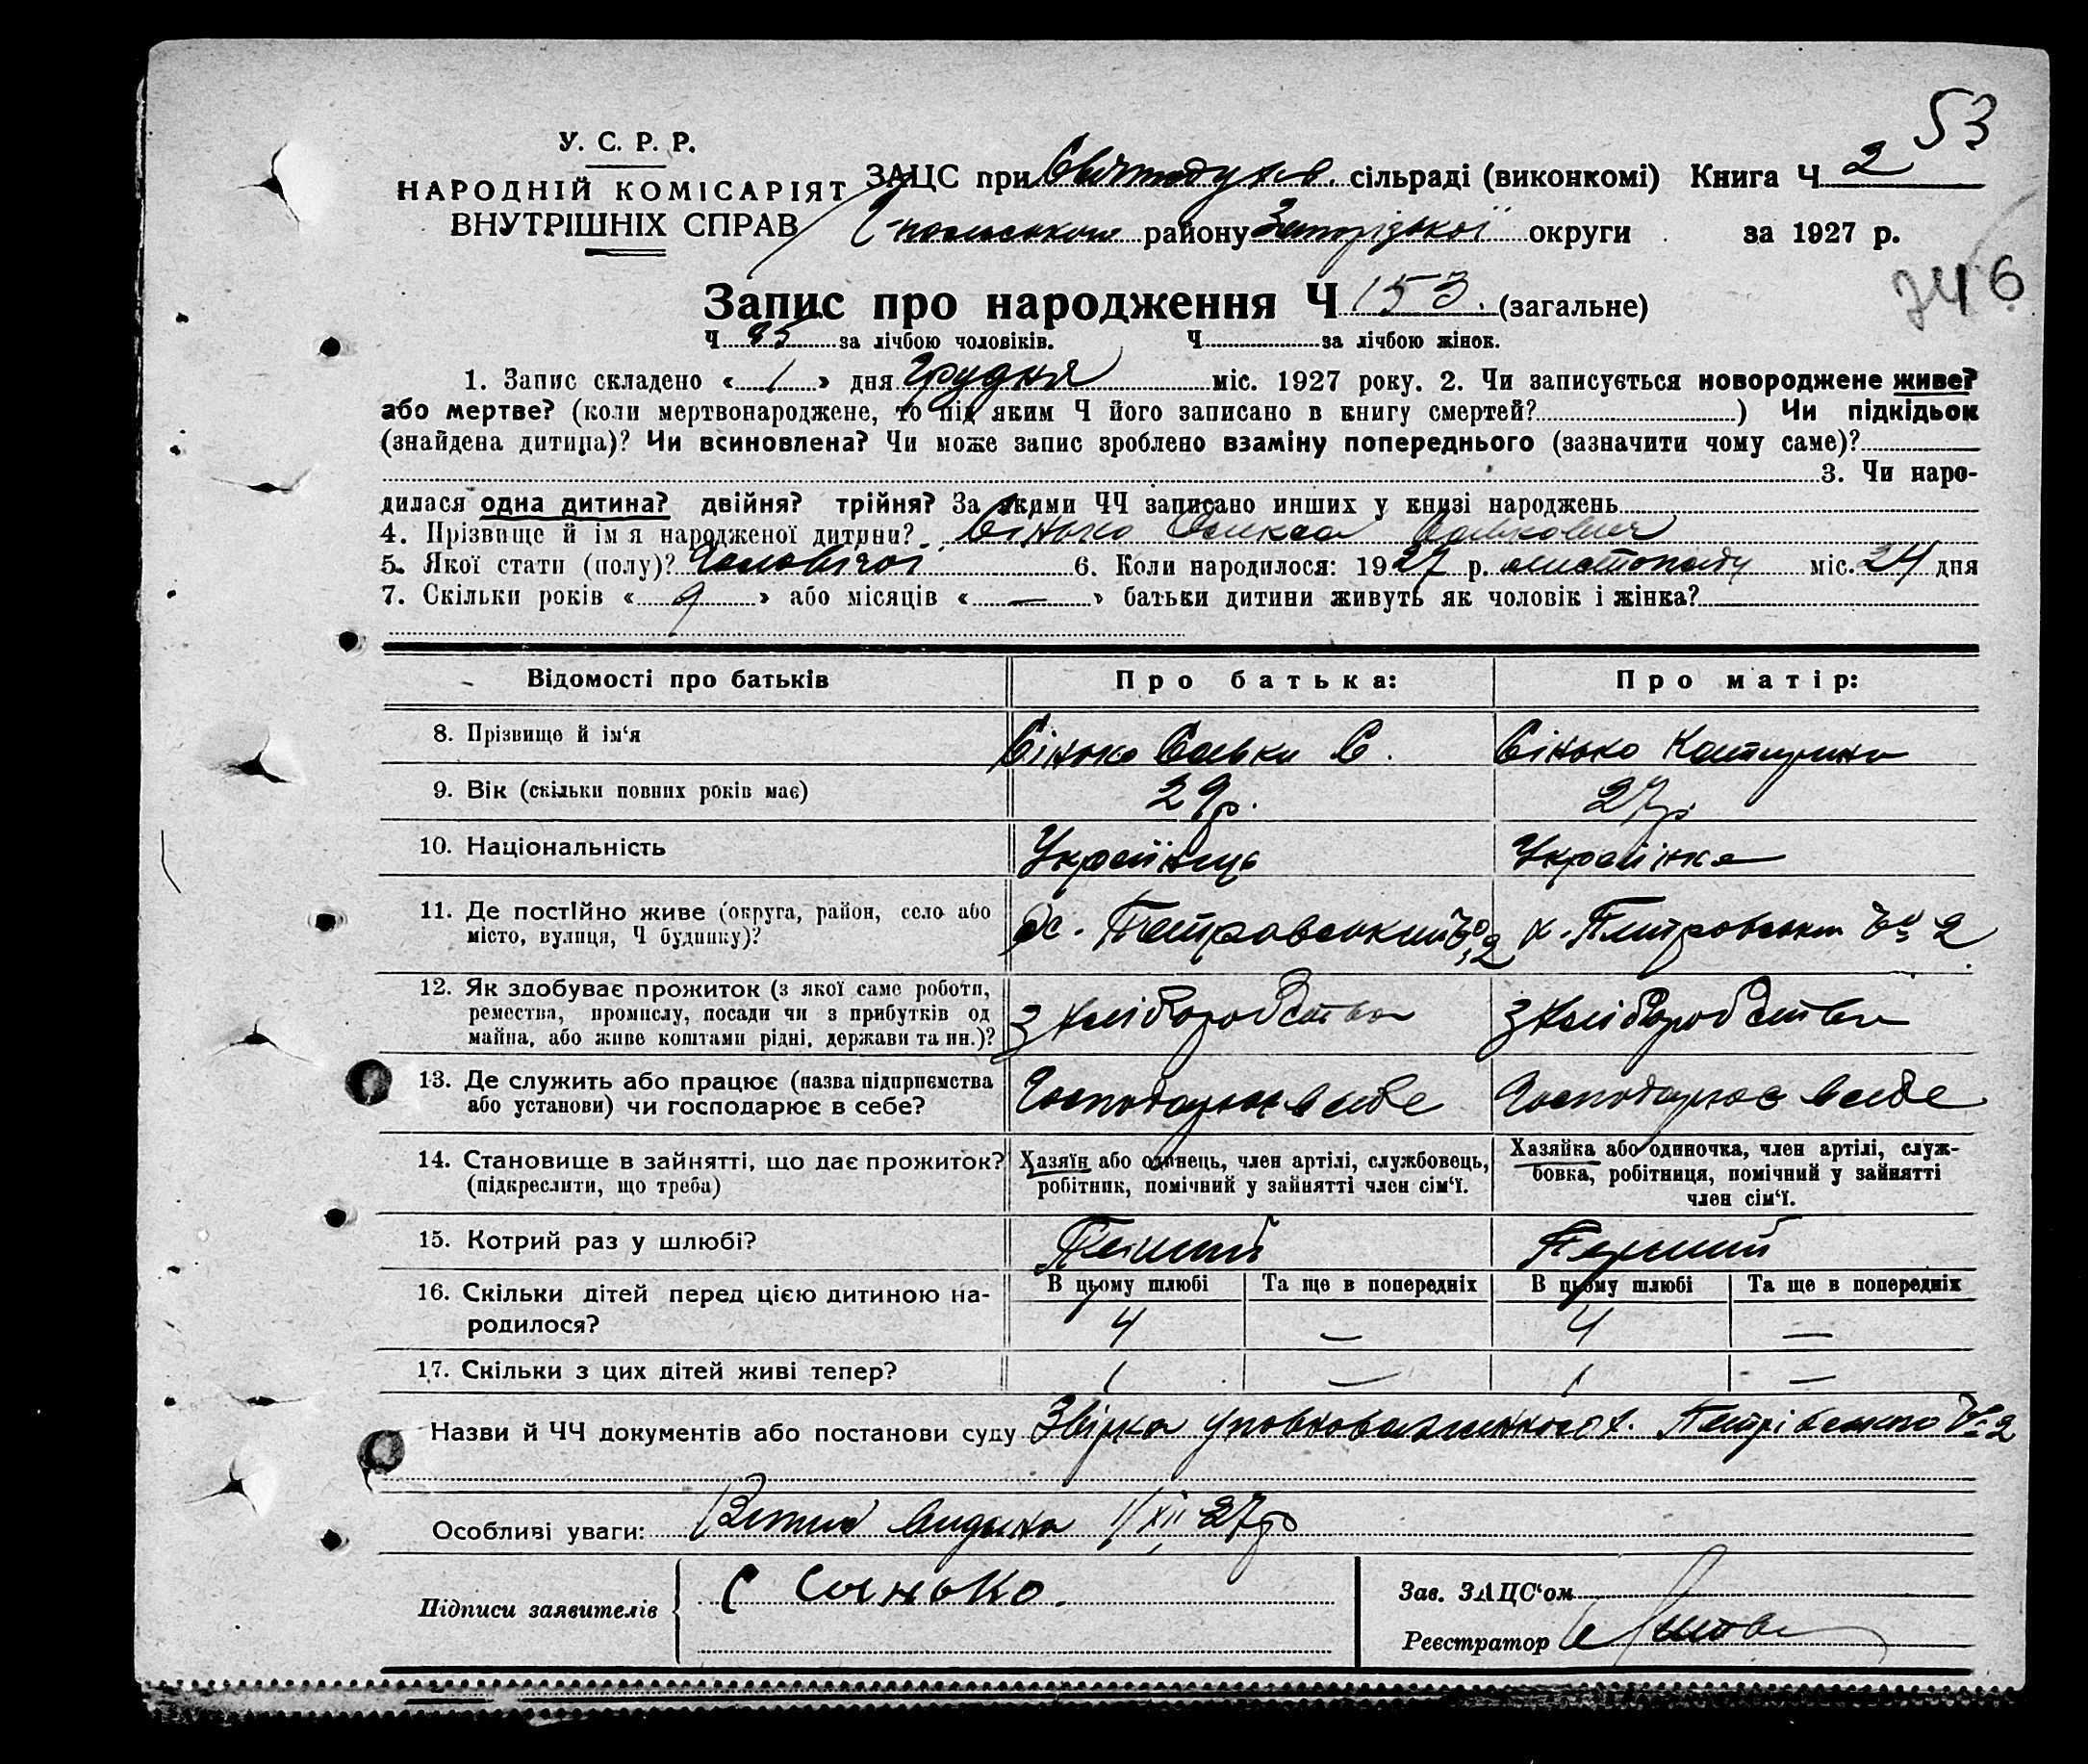 53
У. С. Р. Р.
НАРОДНІЙ КОМІСАРІЯТ
ВНУТРІШНІХ СПРАВ
ЗАЦС при сільраді (виконкомі) Книга Ч 2
району Запорізької округи за 1927 р.
Запис про народження Ч 153. (загальне)
746
Ч 95 за лічбою чоловіків. Ч за лічбою жінок.
1. Запис складено « 1 » дня Грудня міс. 1927 року. 2. Чи записується новороджене живе?
або мертве? (коли мертвонароджене, то під яким Ч його записано в книгу смертей? ) Чи підкідьок
(знайдена дитина)? Чи всиновлена? Чи може запис зроблено взаміну попереднього (зазначити чому саме)?
3. Чи наро-
дилася одна дитина? двійня? трійня? За якими ЧЧ записано инших у книзі народжень
4. Прізвище й ім'я народженої дитини? Сінько
5. Якої стати (полу)? Чоловічої 6. Коли народилося: 1927 р. листопаду міс. 24 дня
7. Скільки років « 9 » або місяців « — » батьки дитини живуть як чоловік і жінка?
Відомості про батьків Про батька: Про матір:
8. Прізвище й ім‘я Сінько Савка С. Сінько Катирина
9. Вік (скільки повних років має) 29 р. 27 р.
10. Національність Українець Українка
11. Де постійно живе (округа, район, село або
місто, вулиця, Ч будинку)? х. Петровський № 2 х. Петровський № 2
12. Як здобуває прожиток (з якої саме роботи,
ремества, промислу, посади чи з прибутків од
майна, або живе коштами рідні, держави та ин.)? З хліборобства З хліборобства
13. Де служить або працює (назва підприємства
або установи) чи господарює в себе? Господарює в себе Господарює в себе
14. Становище в зайнятті, що дає прожиток?
(підкреслити, що треба)
Хазяїн або одинець, член артілі, службовець,
робітник, помічний у зайнятті член сім‘ї.
Хазяйка або одиночка, член артілі, служ-
бовка, робітниця, помічний у зайнятті
член сім‘ї.
15. Котрий раз у шлюбі? Перший Перший
В цьому шлюбі Та ще в попередніх В цьому шлюбі Та ще в попередніх
16. Скільки дітей перед цією дитиною на-
родилося? 4 — 4 —
17. Скільки з цих дітей живі тепер? 1 — 1 —
Назви й ЧЧ документів або постанови суду х. № 2
Особливі уваги: видана 1/XII 27 р
Підписи заявителів С Сінько.
Зав. ЗАЦС‘ом
Реєстратор